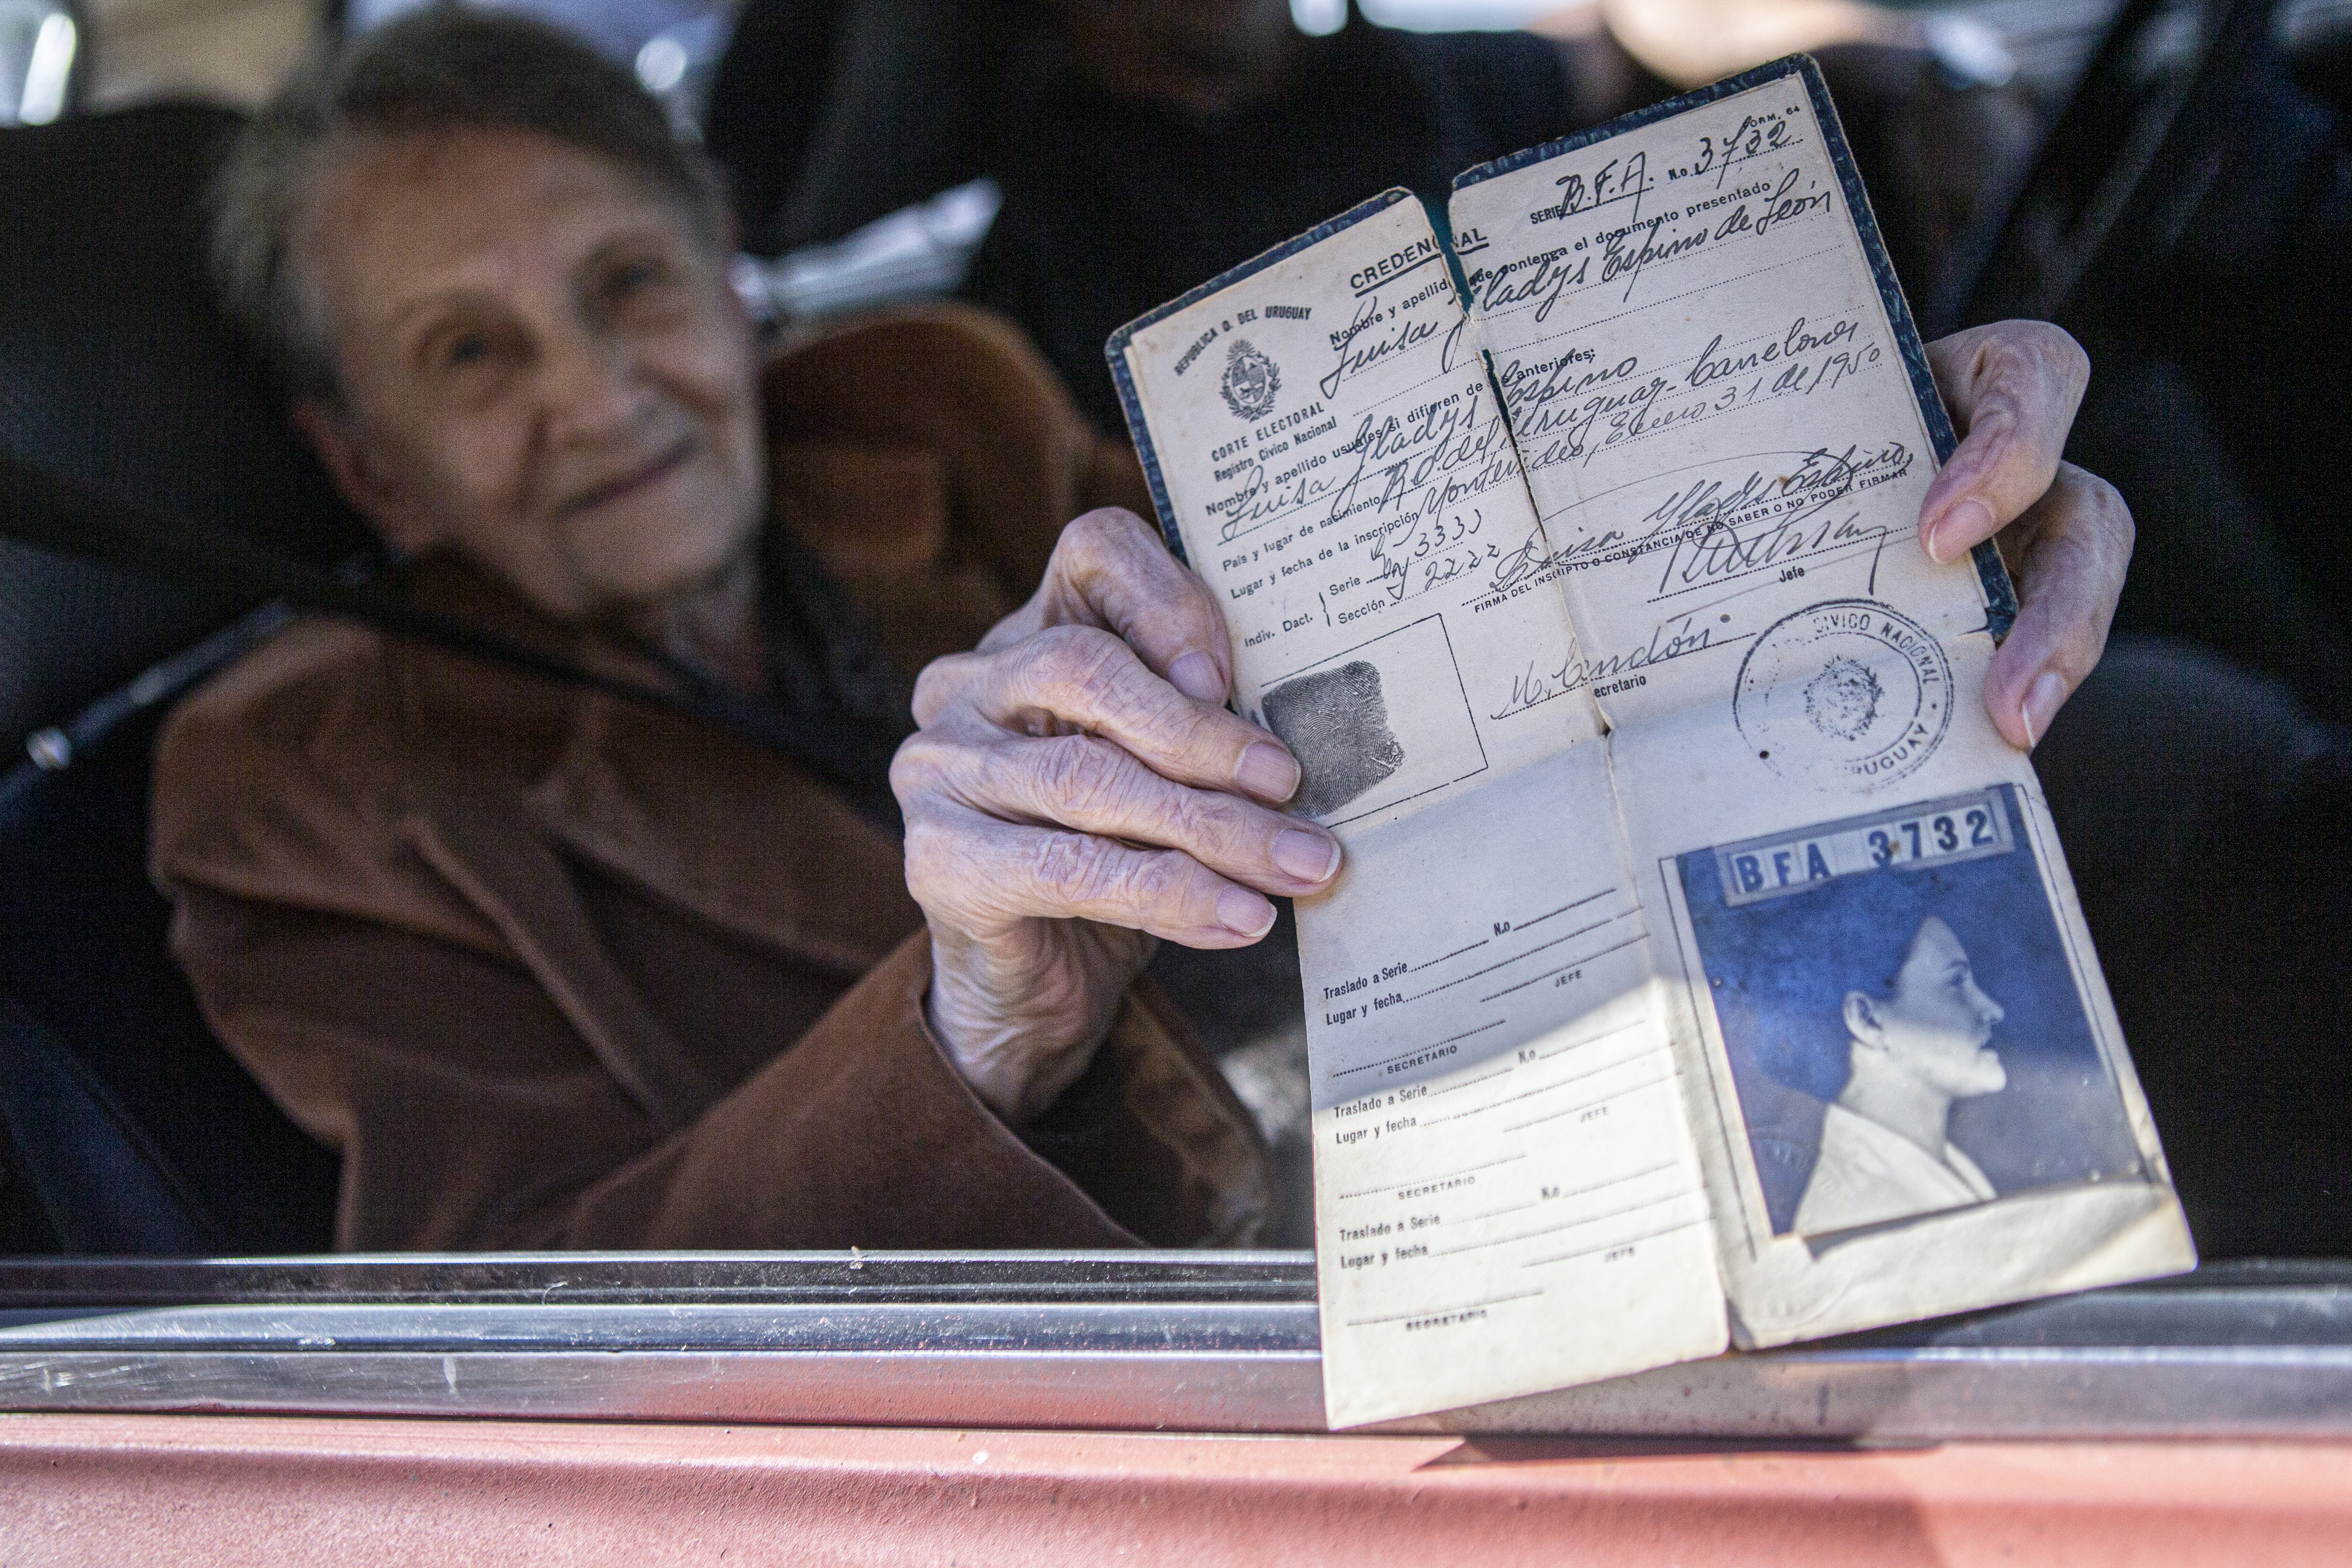 FORM. 64
SERIE B.F.A. N.o 3732
CREDENCIAL
REPUBLICA O. DEL URUGUAY
CORTE ELECTORAL
Registro Cívico Nacional
Nombre y apellido que contenga el documento presentado
Luisa Gladys Espino de León
Nombre y apellido usuales si difieren de anteriores:
Luisa Gladys Espino
País y lugar de nacimiento R.O. del Uruguay - Canelones
Lugar y fecha de la inscripción Montevideo, Enero 31 de 1950
Indiv. Dact.
Serie 3333
Sección 2222
Luisa Gladys Espino
FIRMA DEL INSCRIPTO O CONSTANCIA DE NO SABER O NO PODER FIRMAR
Jefe
Secretario
CIVICO NACIONAL • URUGUAY
BFA 3732
Traslado a Serie N.o
Lugar y fecha
JEFE
SECRETARIO
Traslado a Serie N.o
Lugar y fecha
JEFE
SECRETARIO
Traslado a Serie N.o
Lugar y fecha
JEFE
SECRETARIO